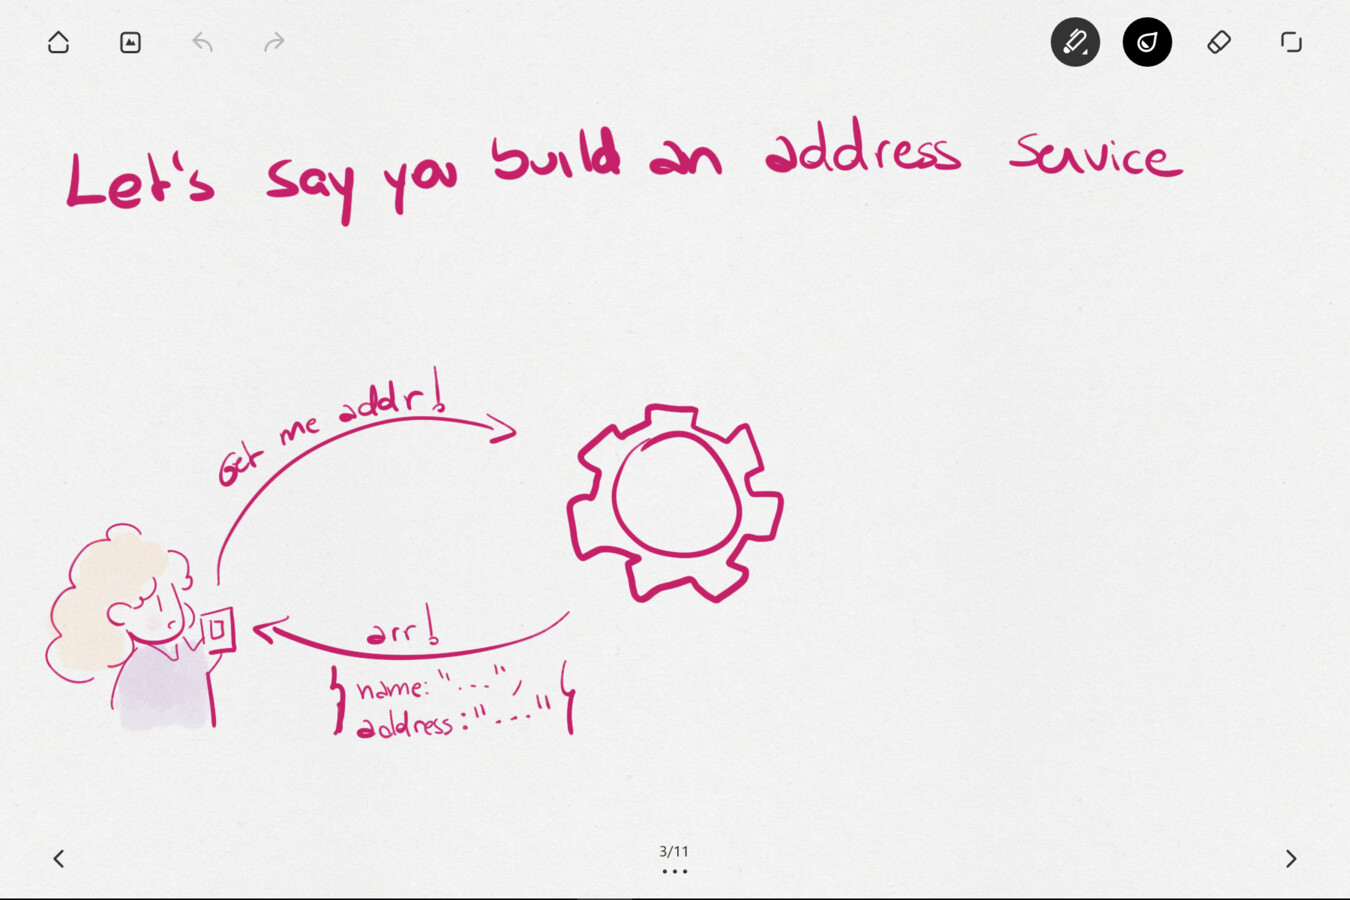 Let's say you build an address service
Get me addr!
arr!
{ name: "...",
address: "..." }
3/11